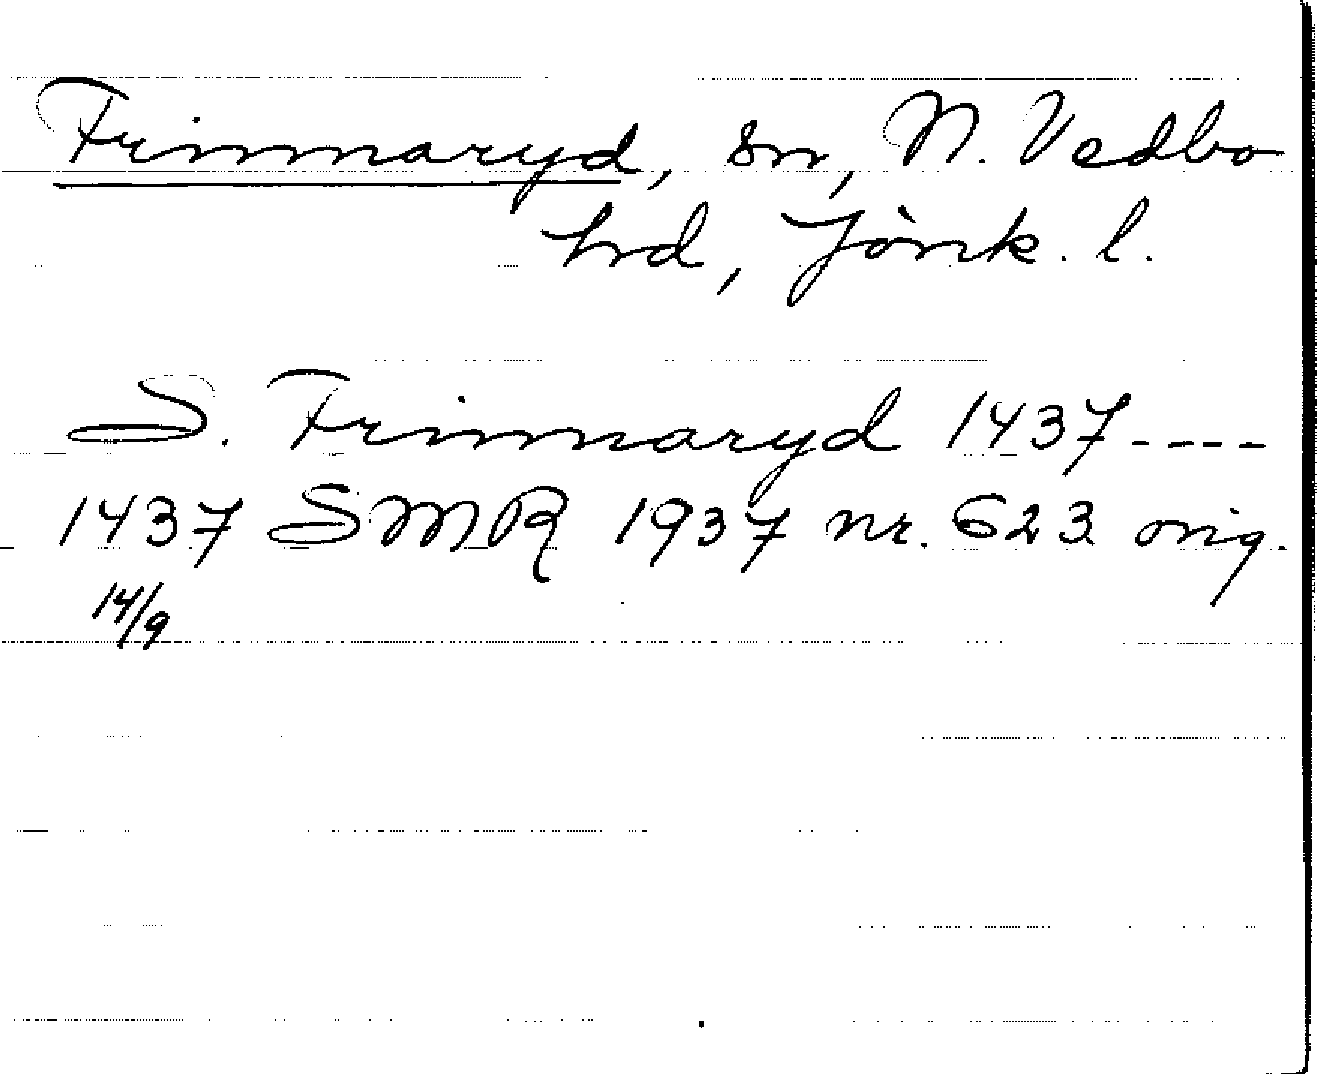 Frinnaryd, sn, N. Vedbo
hrd, Jönk. l.
S. Frinnaryd 1437 ----
1437 SMR 1937 nr. 623 orig.
14/9